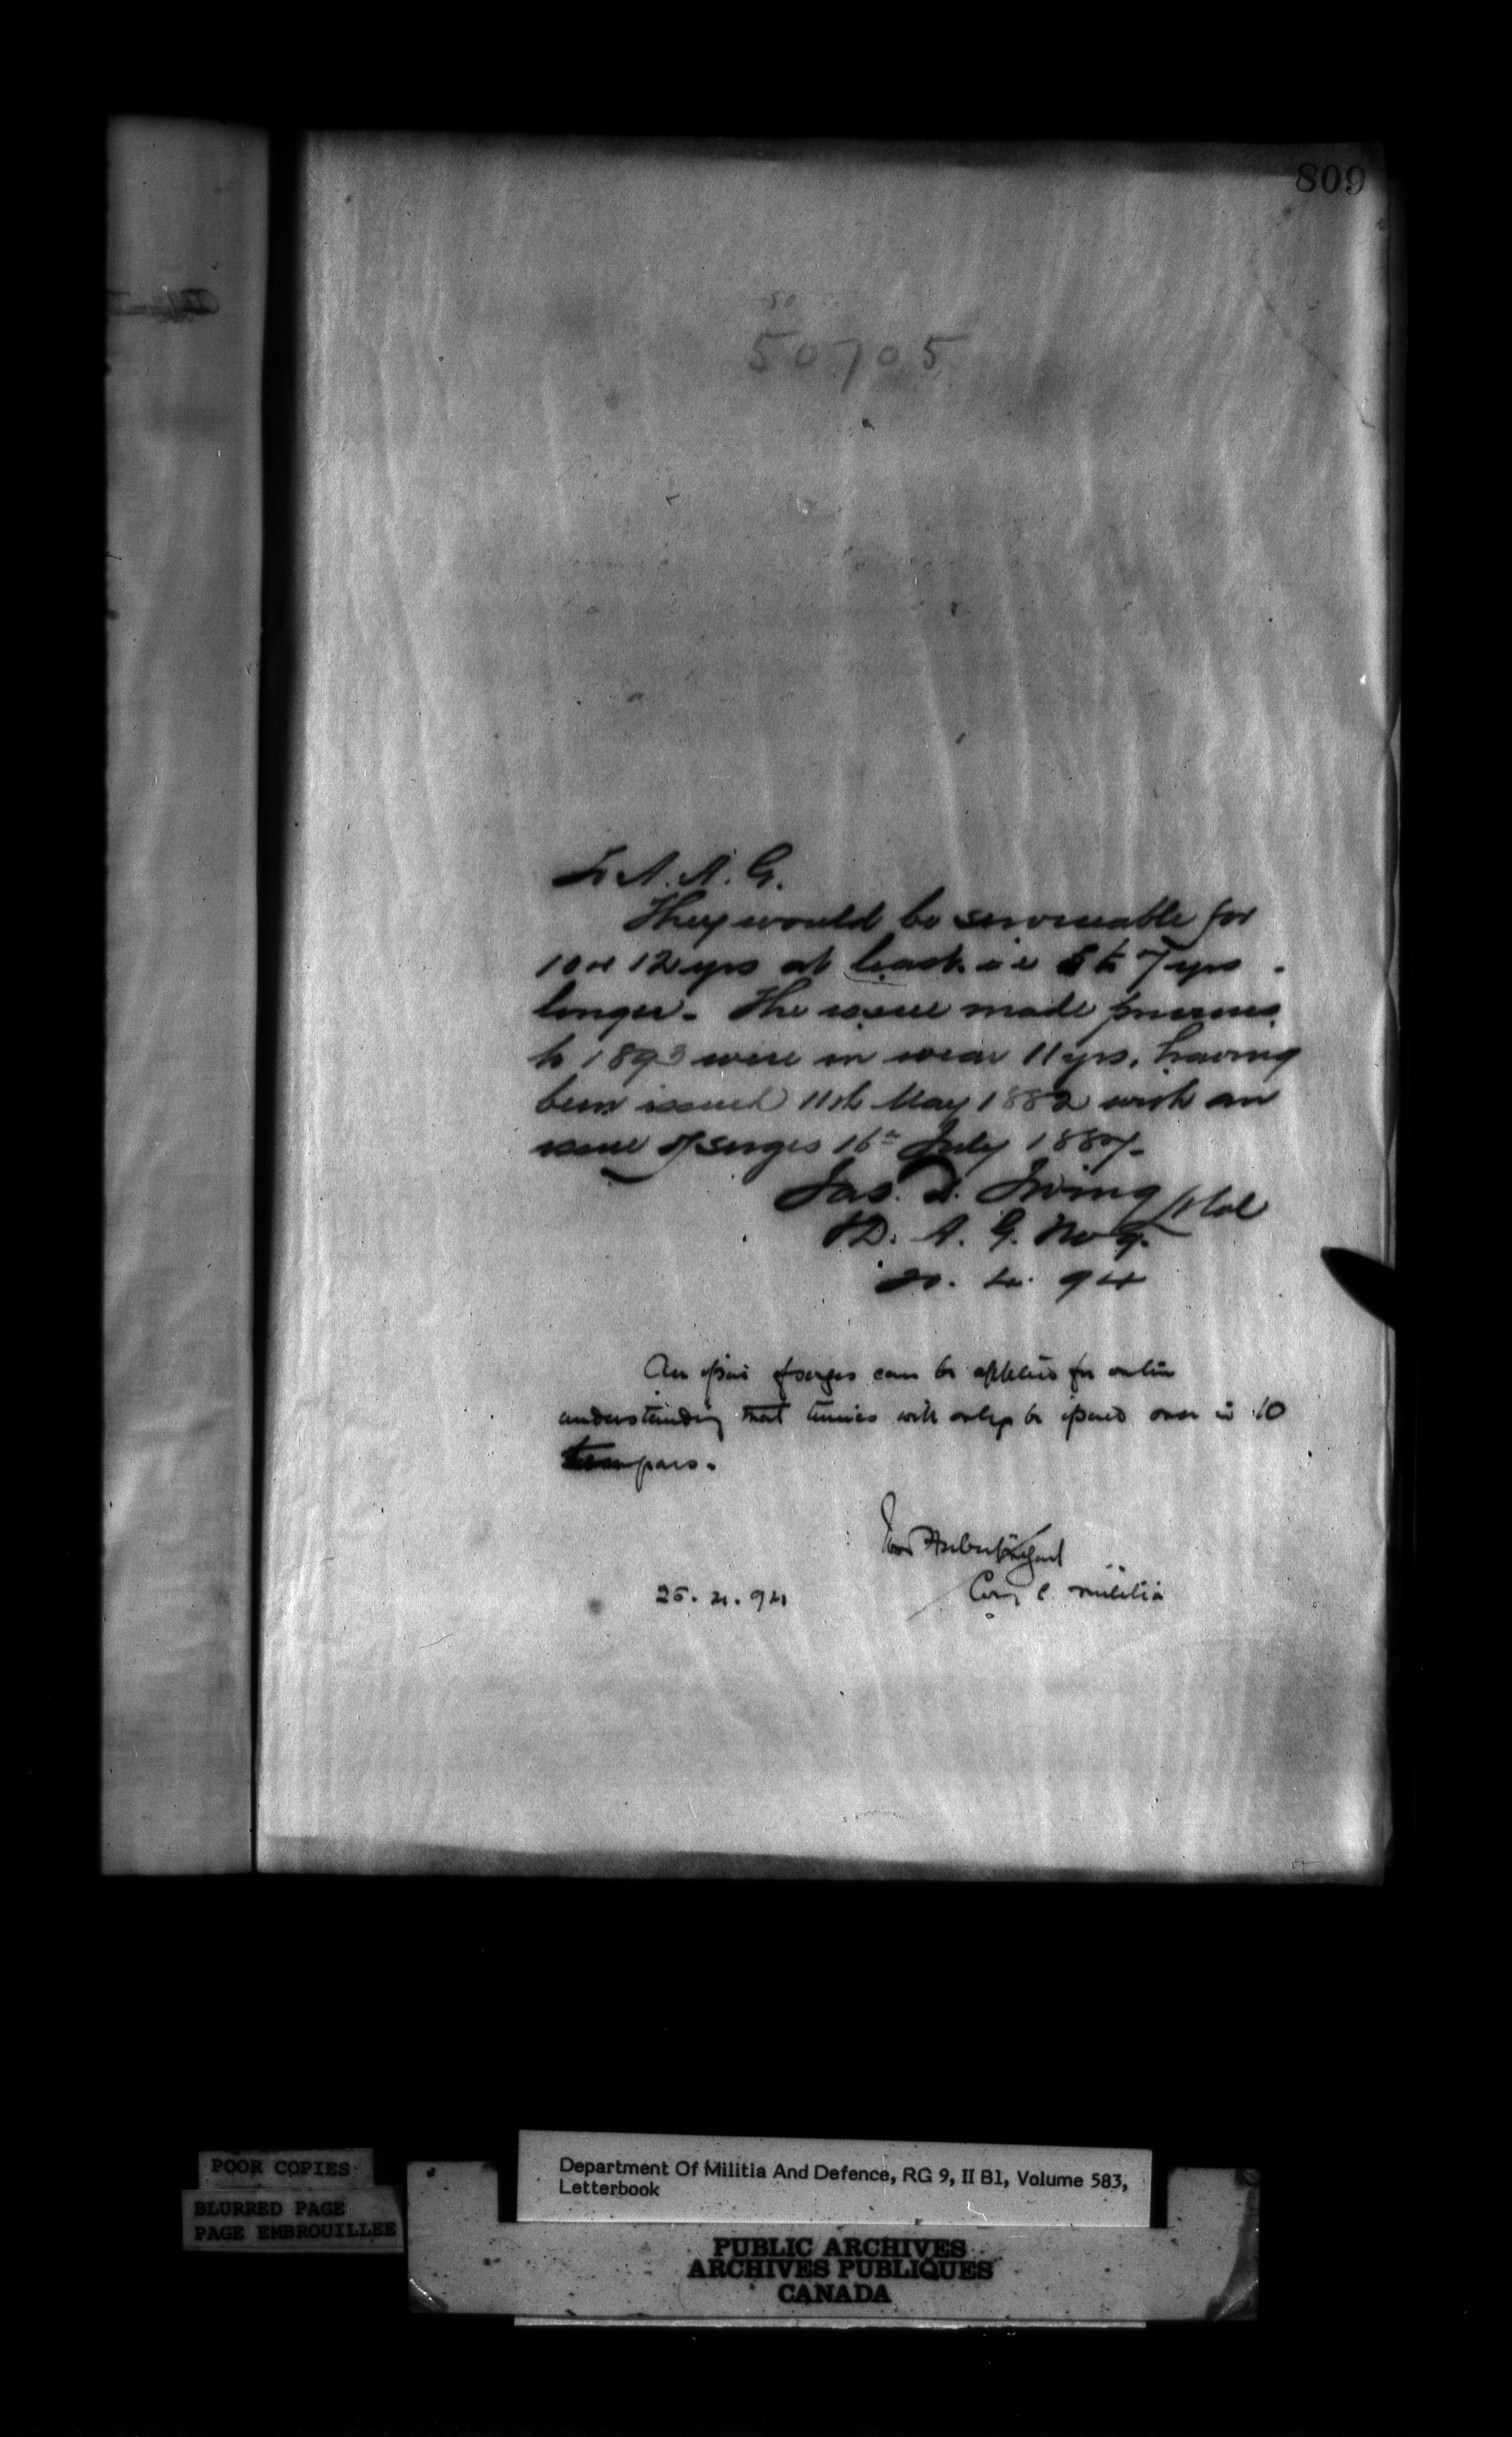 809
50
50705
To A. A. G.
They would be serviceable for
10 or 12 yrs at least i e 5 to 7 yrs
longer. The issue made previous
to 1893 were in wear 11 yrs, having
been issued 11th May 1882 with an
issue of serges 16th July 1887.
Jas. D. Irving Lt Col
D. A. G. No 9.
20. 4. 94
An issue of serges can be applied for on the
understanding that tunics will only be issued once in 10
years.
Ivor Herbert M Genl
Comg C. Militia
25. 4. 94
POOR COPIES
BLURRED PAGE
PAGE EMBROUILLEE
Department Of Militia And Defence, RG 9, II B1, Volume 583,
Letterbook
PUBLIC ARCHIVES
ARCHIVES PUBLIQUES
CANADA